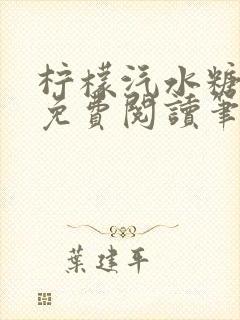 柠檬汽水糖
免費閱讀筆
葉建平